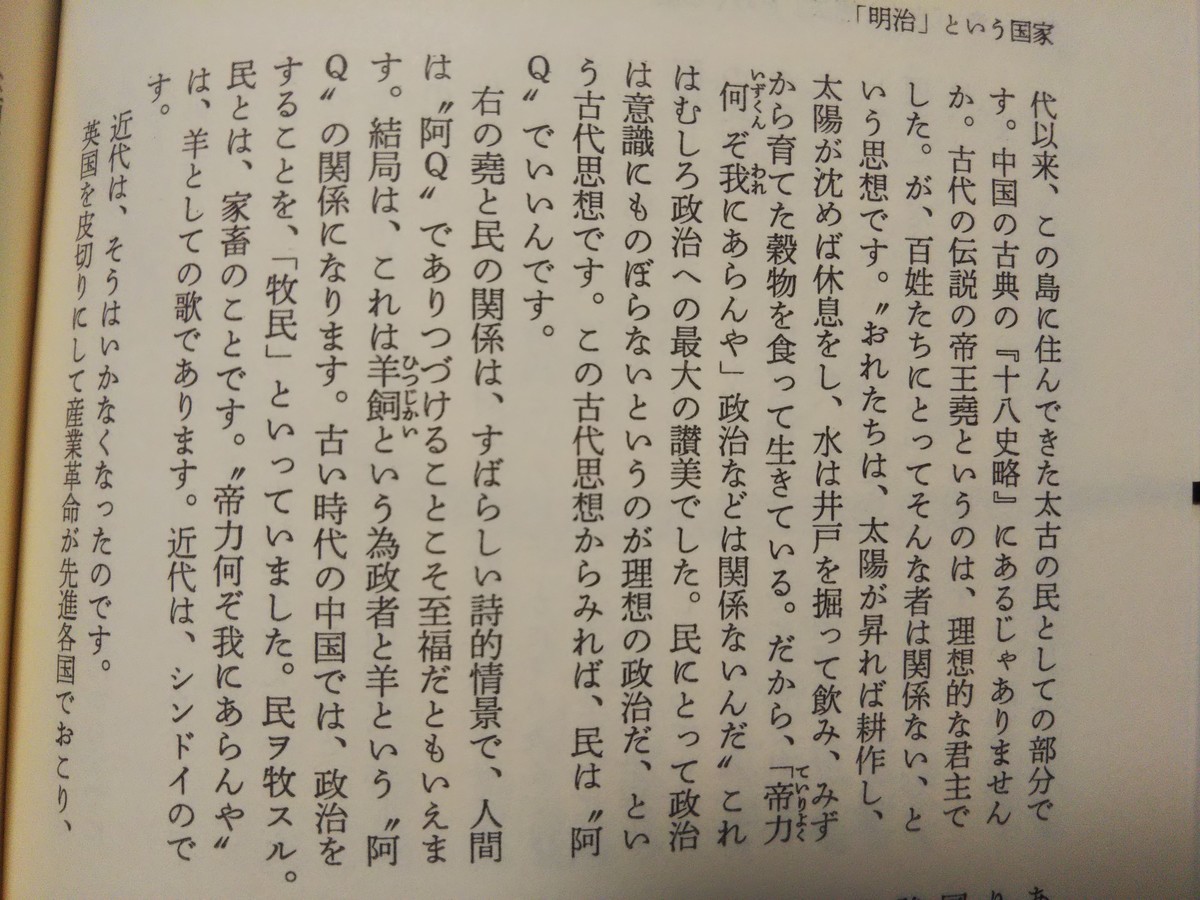 「明治」という国家
代以来、この島に住んできた太古の民としての部分で
す。中国の古典の『十八史略』にあるじゃありません
か。古代の伝説の帝王堯というのは、理想的な君主で
した。が、百姓たちにとってそんな者は関係ない、と
いう思想です。〝おれたちは、太陽が昇れば耕作し、
太陽が沈めば休息をし、水は井戸を掘って飲み、みず
から育てた穀物を食って生きている。だから、「帝力
何ぞ我にあらんや」政治などは関係ないんだ〟これ
はむしろ政治への最大の讃美でした。民にとって政治
は意識にものぼらないというのが理想の政治だ、とい
う古代思想です。この古代思想からみれば、民は〝阿
Q〟でいいんです。
右の堯と民の関係は、すばらしい詩的情景で、人間
は〝阿Q〟でありつづけることこそ至福だともいえま
す。結局は、これは羊飼という為政者と羊という〝阿
Q〟の関係になります。古い時代の中国では、政治を
することを、「牧民」といっていました。民ヲ牧スル。
民とは、家畜のことです。〝帝力何ぞ我にあらんや〟
は、羊としての歌であります。近代は、シンドイので
す。
近代は、そうはいかなくなったのです。
英国を皮切りにして産業革命が先進各国でおこり、